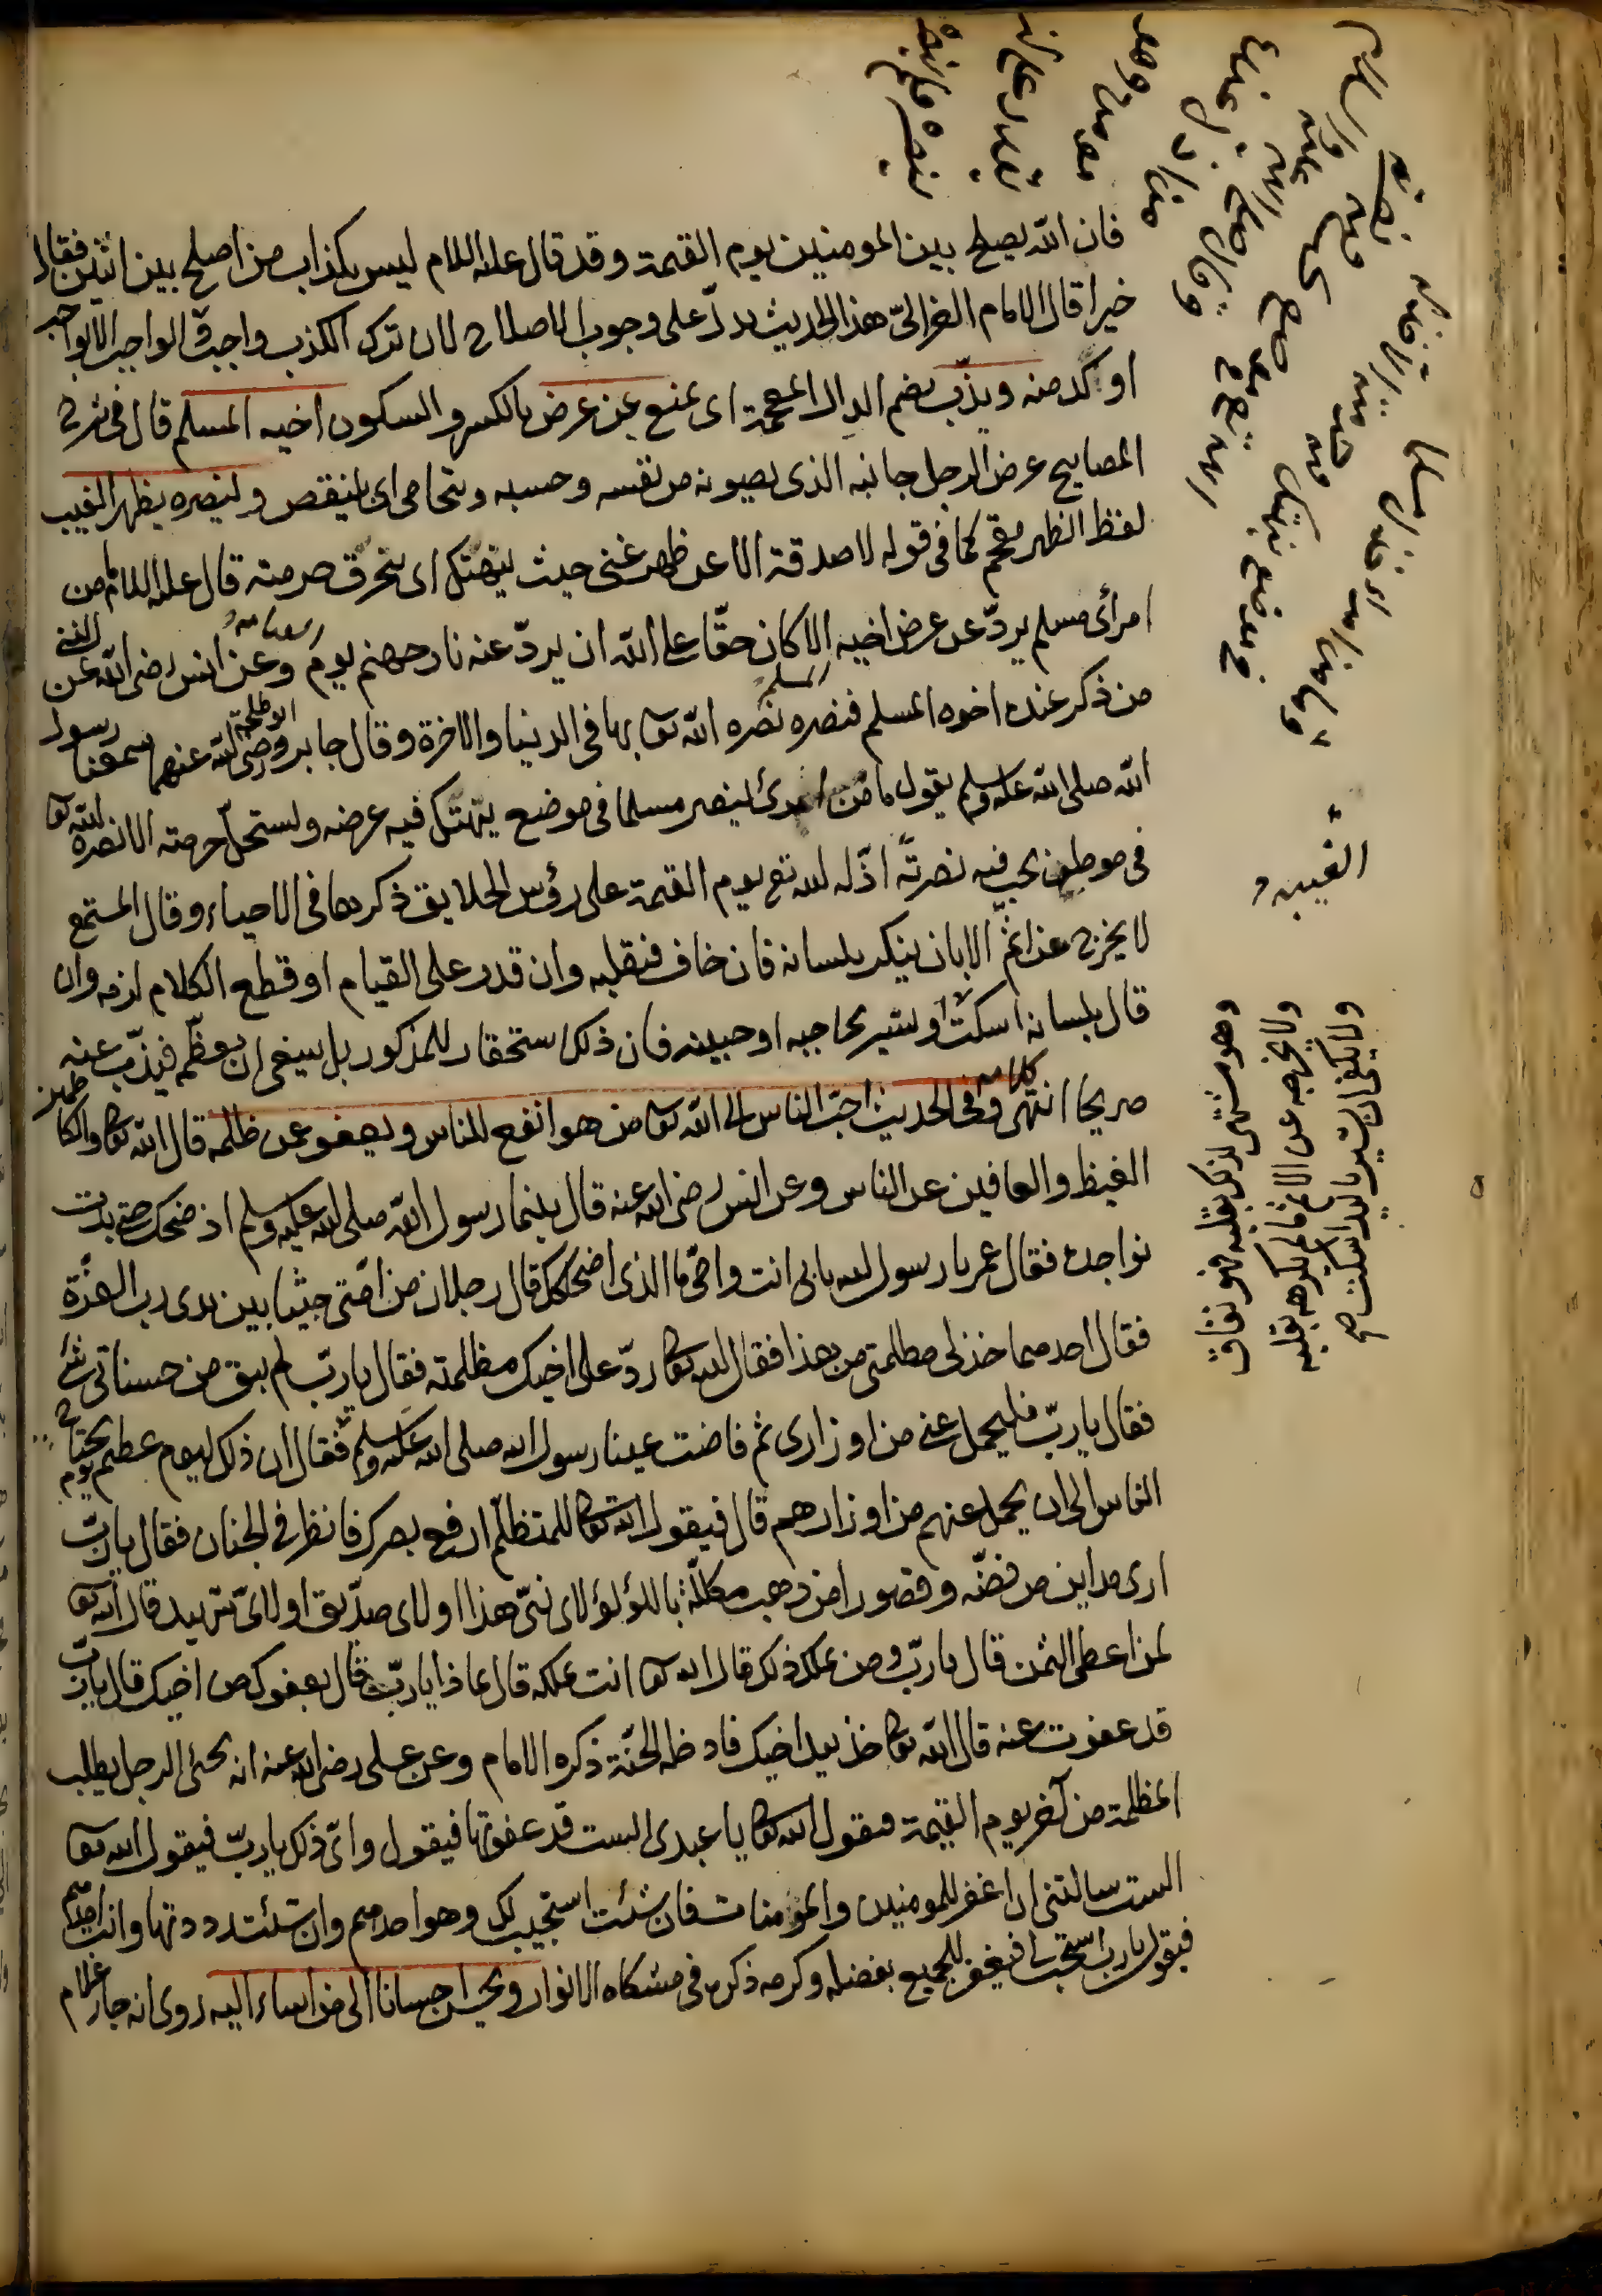 فان الله يصلح بين المومنين يوم القيمة وقد قال عليه السلام ليس بكذاب من اصلح بين اثنين فقال
خيرا قال الامام الغزالي هذا الحديث يدل على وجوب الاصلاح لان ترك الكذب واجب والواجب الا بواجب
او كد منه ويذب بضم الدال المعجمة اى يمنع عن عرض بالكسر والسكون اخيه المسلم قال فى شرح
المصابيح عرض الرجل جانبه الذى يصونه من نفسه وحسبه ويتحامى اى ينتقص ولينصره بظهر الغيب
لفظ الظهر مقحم كما فى قوله لا صدقة الا عن ظهر غنى حيث ينهتك اى ينخرق حرمته قال عليه السلام ما من
امرئ مسلم يرد عن عرض اخيه الا كان حقا على الله ان يرد عنه نار جهنم يوم وعن انس رضى الله عن النبى
من ذكر عنده اخوه المسلم فنصره نصره الله تعا بها فى الدنيا والاخرة وقال جابر وابو طلحة رضى الله عنهم سمعنا رسول
الله صلى الله عليه وسلم يقول ما من امرئ ينصر مسلما فى موضع يهتك فيه عرضه ويستحل حرمته الا نصره الله تعا
فى موطن يحب فيه نصرته اذله الله تع يوم القيمة على رؤس الخلايق ذكرهما فى الاحياء وقال المستمع
لا يخرج عن اثم الا بان ينكر بلسانه فان خاف فبقلبه وان قدر على القيام او قطع الكلام لزمه وان
قال بلسانه اسكت او يشير بحاجبه او جبينه فان ذلك استحقار للمذكور بل ينبغى ان يعظمه فيذب عنه
صريحا انتهى كلامه وفى الحديث احب الناس الى الله تعا من هو انفع للناس ويعفو عمن ظلمه قال الله تعا والكاظمين
الغيظ والعافين عن الناس وعن انس رضى الله عنه قال بينما رسول الله صلى الله عليه وسلم اذ ضحك حتى بدت
نواجده فقال عمر يا رسول الله بابى انت وامى ما الذى اضحكك قال رجلان من امتى جثيا بين يدى رب العزة
فقال احدهما خذ لى مظلمتى من هذا فقال الله تعا رد على اخيك مظلمته فقال يا رب لم يبق من حسناتى شئ
فقال يا رب فليحمل عنى من اوزارى ثم فاضت عينا رسول الله صلى الله عليه وسلم فقال ان ذلك ليوم عظيم يوم يحتاج
الناس الى ان يحمل عنهم من اوزارهم قال فيقول الله تعا للمتظلم ارفع بصرك فانظر فى الجنان فقال يا رب
ارى مداين من فضة وقصورا من ذهب مكللة باللؤلؤ لاى نبى هذا او لاى صديق او لاى شهيد قال الله تعا
لمن اعطى الثمن قال يا رب ومن يملك ذلك قال الله تعا انت تملكه قال بماذا يا رب قال بعفوك عن اخيك قال يا رب
قد عفوت عنه قال الله تعا خذ بيد اخيك فادخله الجنة ذكره الامام وعن على رضى الله عنه انه يجئ الرجل يطلب
المظلمة من آخر يوم القيمة فيقول الله تعا يا عبدى الست قد عفوتها فيقول واى ذلك يا رب فيقول الله تعا
الست سالتنى ان اغفر للمومنين والمومنات فان شئت استجيب لك وهو احدهم وان شئت رددتها وانت احدهم
فيقول يا رب استجب لى فيغفر للجميع بفضله وكرمه ذكره فى مشكاة الانوار ويحسن احسانا الى من اساء اليه روى انه جاء غلام
الغيبة
وهو مشتهى لذكر بقلبه فهو نفاق
ولا يخرجه عن الاثم ما لم يكرهه بقلبه
ولا يكفى ان يشير باليد اسكت صح